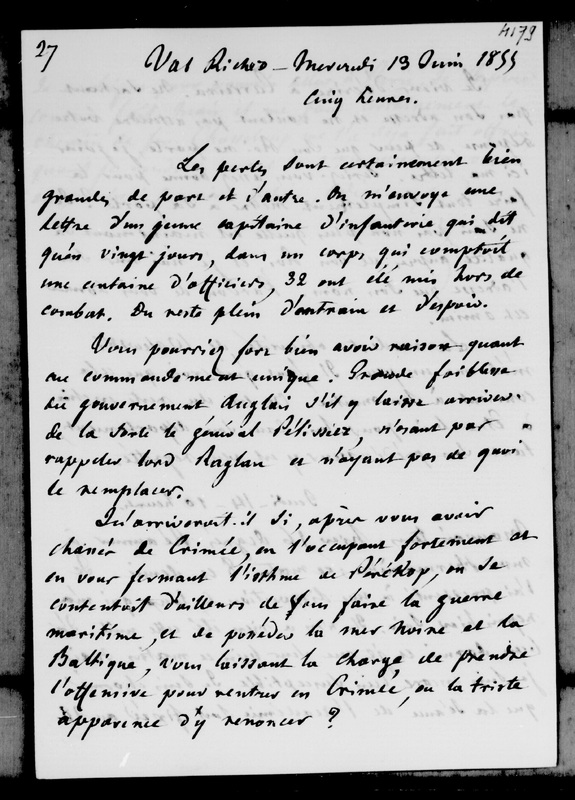 27
4179
Val Richer - Mercredi 13 Juin 1855
Cinq heures.
Les pertes sont certainement bien
grandes de part et d'autre. On m'envoye une
lettre d'un jeune capitaine d'infanterie qui dit
qu'en vingt jours, dans un corps qui comptoit
une centaine d'officiers, 32 ont été mis hors de
combat. Du reste plein d'entrain et d'espoir.
Vous pourriez fort bien avoir raison quant
au commandement unique. Grande faiblesse
du gouvernement Anglais s'il y laisse arriver
de la sorte le général Pélissier, n'osant pas
rappeler lord Raglan et n'ayant pas de quoi
le remplacer.
Qu'arriveroit-il si, après vous avoir
chassés de Crimée, en l'occupant fortement et
en vous fermant l'isthme de Pérékop, on se
contentoit d'ailleurs de vous faire la guerre
maritime, et de posséder la mer Noire et la
Baltique, vous laissant la charge de prendre
l'offensive pour rentrer en Crimée, ou la triste
apparence d'y renoncer ?